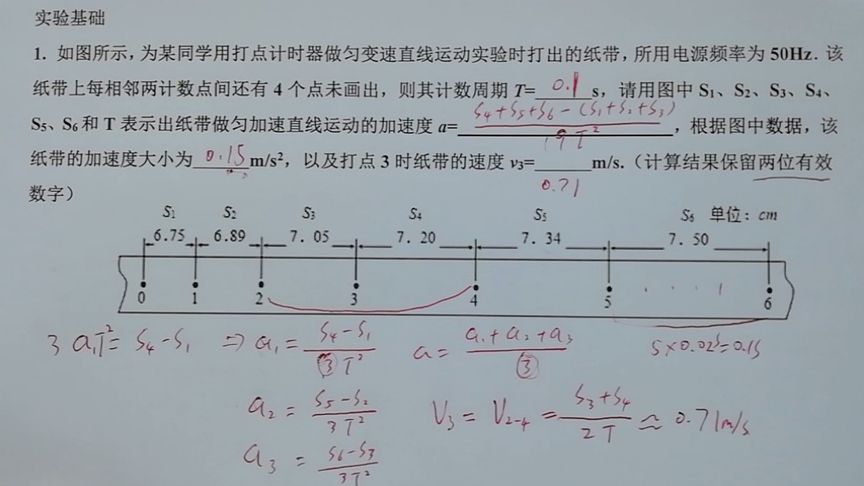 实验基础
1. 如图所示，为某同学用打点计时器做匀变速直线运动实验时打出的纸带，所用电源频率为 50Hz．该
纸带上每相邻两计数点间还有 4 个点未画出，则其计数周期 T= 0.1 s，请用图中 S₁、S₂、S₃、S₄、
S₅、S₆ 和 T 表示出纸带做匀加速直线运动的加速度 a= S₄+S₅+S₆-(S₁+S₂+S₃) / 9T² ，根据图中数据，该
纸带的加速度大小为 0.15 m/s²，以及打点 3 时纸带的速度 v₃= 0.71 m/s.（计算结果保留两位有效
数字）
S₁ S₂ S₃ S₄ S₅ S₆ 单位：cm
6.75 6.89 7.05 7.20 7.34 7.50
0 1 2 3 4 5 6
3a₁T²=S₄-S₁ ⇒ a₁= S₄-S₁ / 3T² a= a₁+a₂+a₃ / 3 5×0.02s=0.1s
a₂= S₅-S₂ / 3T² V₃= V₂₋₄ = S₃+S₄ / 2T ≈ 0.71m/s
a₃= S₆-S₃ / 3T²